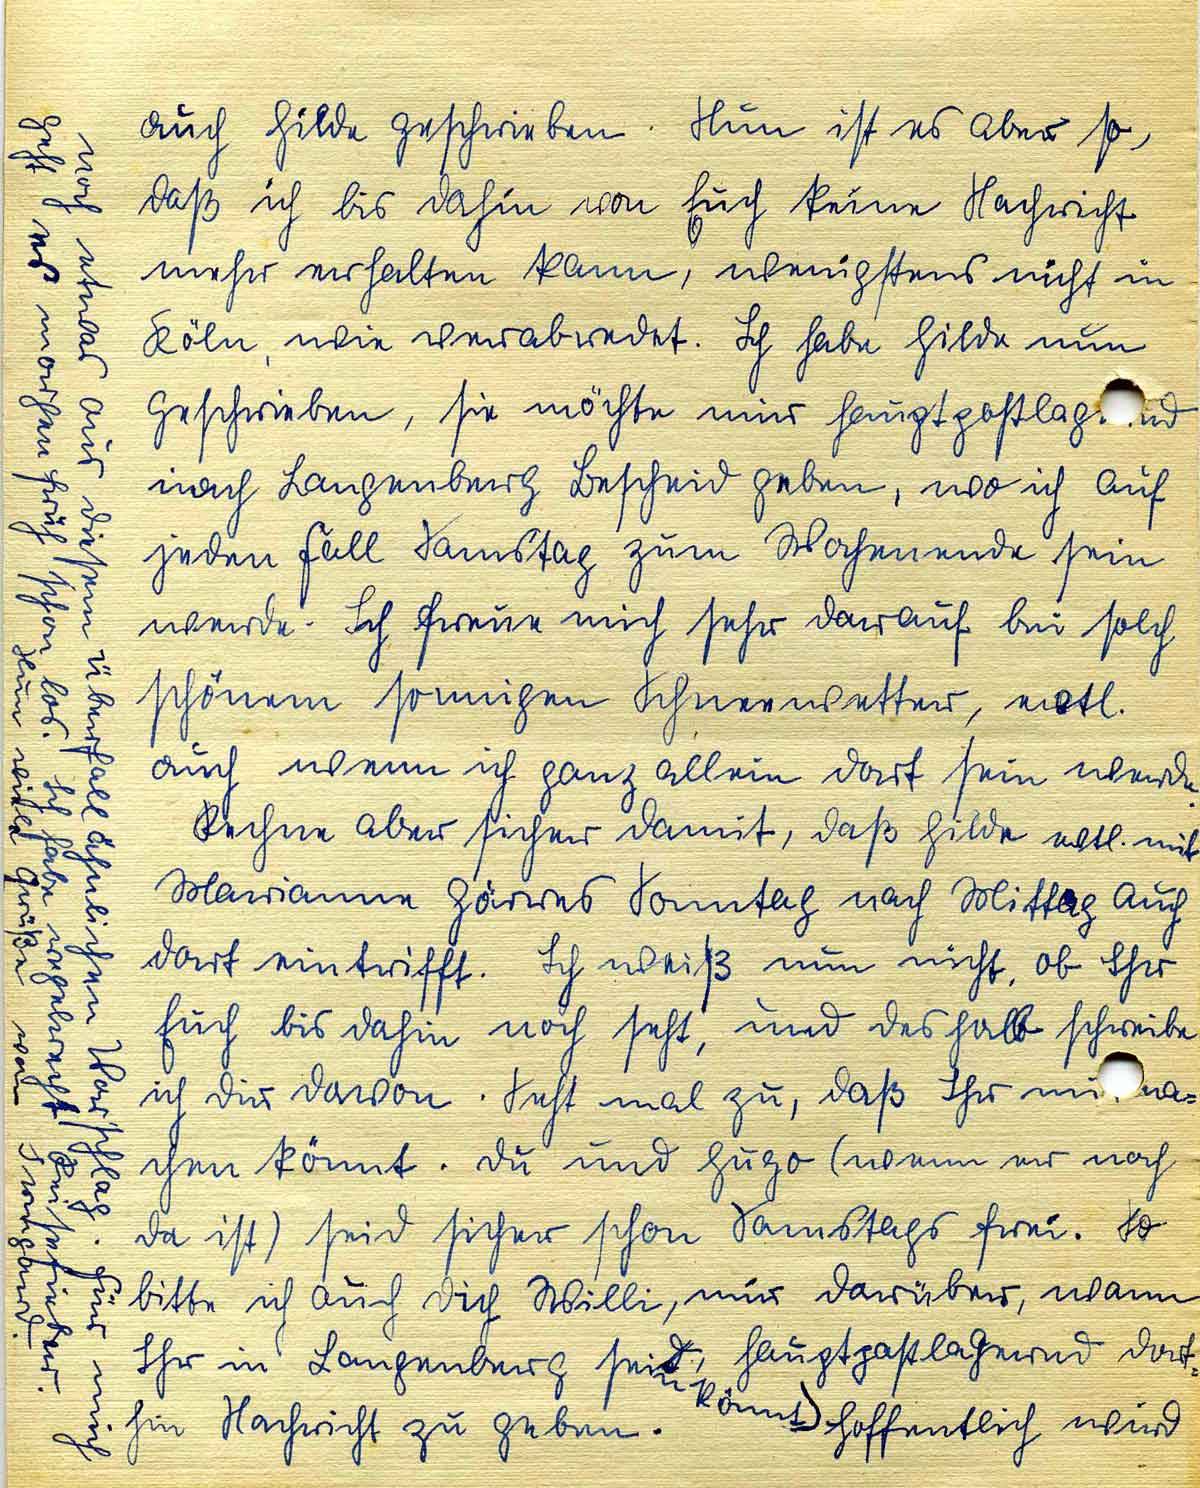 auch Hilde geschrieben. Nun ist es aber so,
daß ich bis dahin von Euch keine Nachricht
mehr erhalten kann, wenigstens nicht in
Köln, wie verabredet. Ich habe Hilde nun
geschrieben, sie möchte mir hauptpostlagernd
nach Langenberg Bescheid geben, wo ich auf
jeden Fall Samstag zum Wochenende sein
werde. Ich freue mich sehr darauf bei solch
schönem sonnigen Schneewetter, evtl.
auch wenn ich ganz allein dort sein werde.
Rechne aber sicher damit, daß Hilde evtl. mit
Marianne Görres Sonntag nach Mittag auch
dort eintrifft. Ich weiß nun nicht, ob Ihr
Euch bis dahin noch seht, und deshalb schreibe
ich dir davon. Seht mal zu, daß Ihr mit ma=
chen könnt. Du und Hugo (wenn er noch
da ist) seid sicher schon Samstags frei. So
bitte ich auch dich Willi, mir darüber, wann
Ihr in Langenberg seid, hauptpostlagernd dort=
sein könnt)
hin Nachricht zu geben. Hoffentlich wird
noch etwas aus diesem überfallähnlichen Vorschlag. Für mich
geht es morgen früh schon los. Ich habe regelrecht Reisefieber.
Nun viele Grüße von Irmgard.